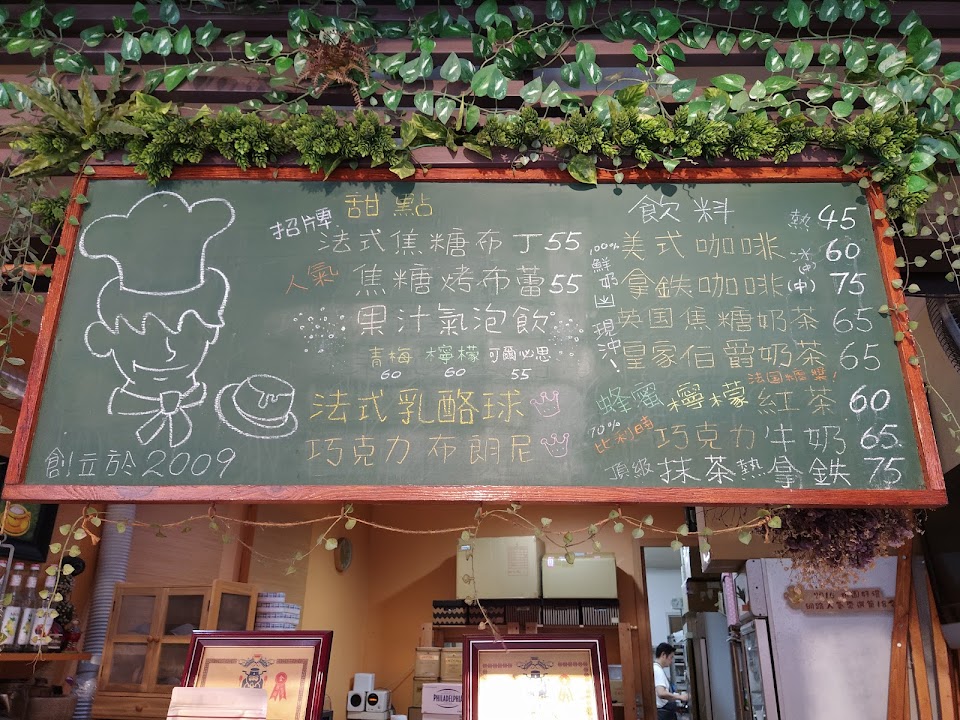 甜點
招牌 法式焦糖布丁55
人氣 焦糖烤布蕾55
果汁氣泡飲
青梅 檸檬 可爾必思
60 60 55
法式乳酪球
巧克力布朗尼
創立於2009
飲料
熱45
美式咖啡 60
100%鮮奶 現沖!
拿鉄咖啡(中)75
英国焦糖奶茶65
皇家伯爵奶茶65
法国糖漿!
蜂蜜檸檬紅茶60
70%比利時巧克力牛奶65
頂級抹茶熱拿鉄75
PHILADELPHIA